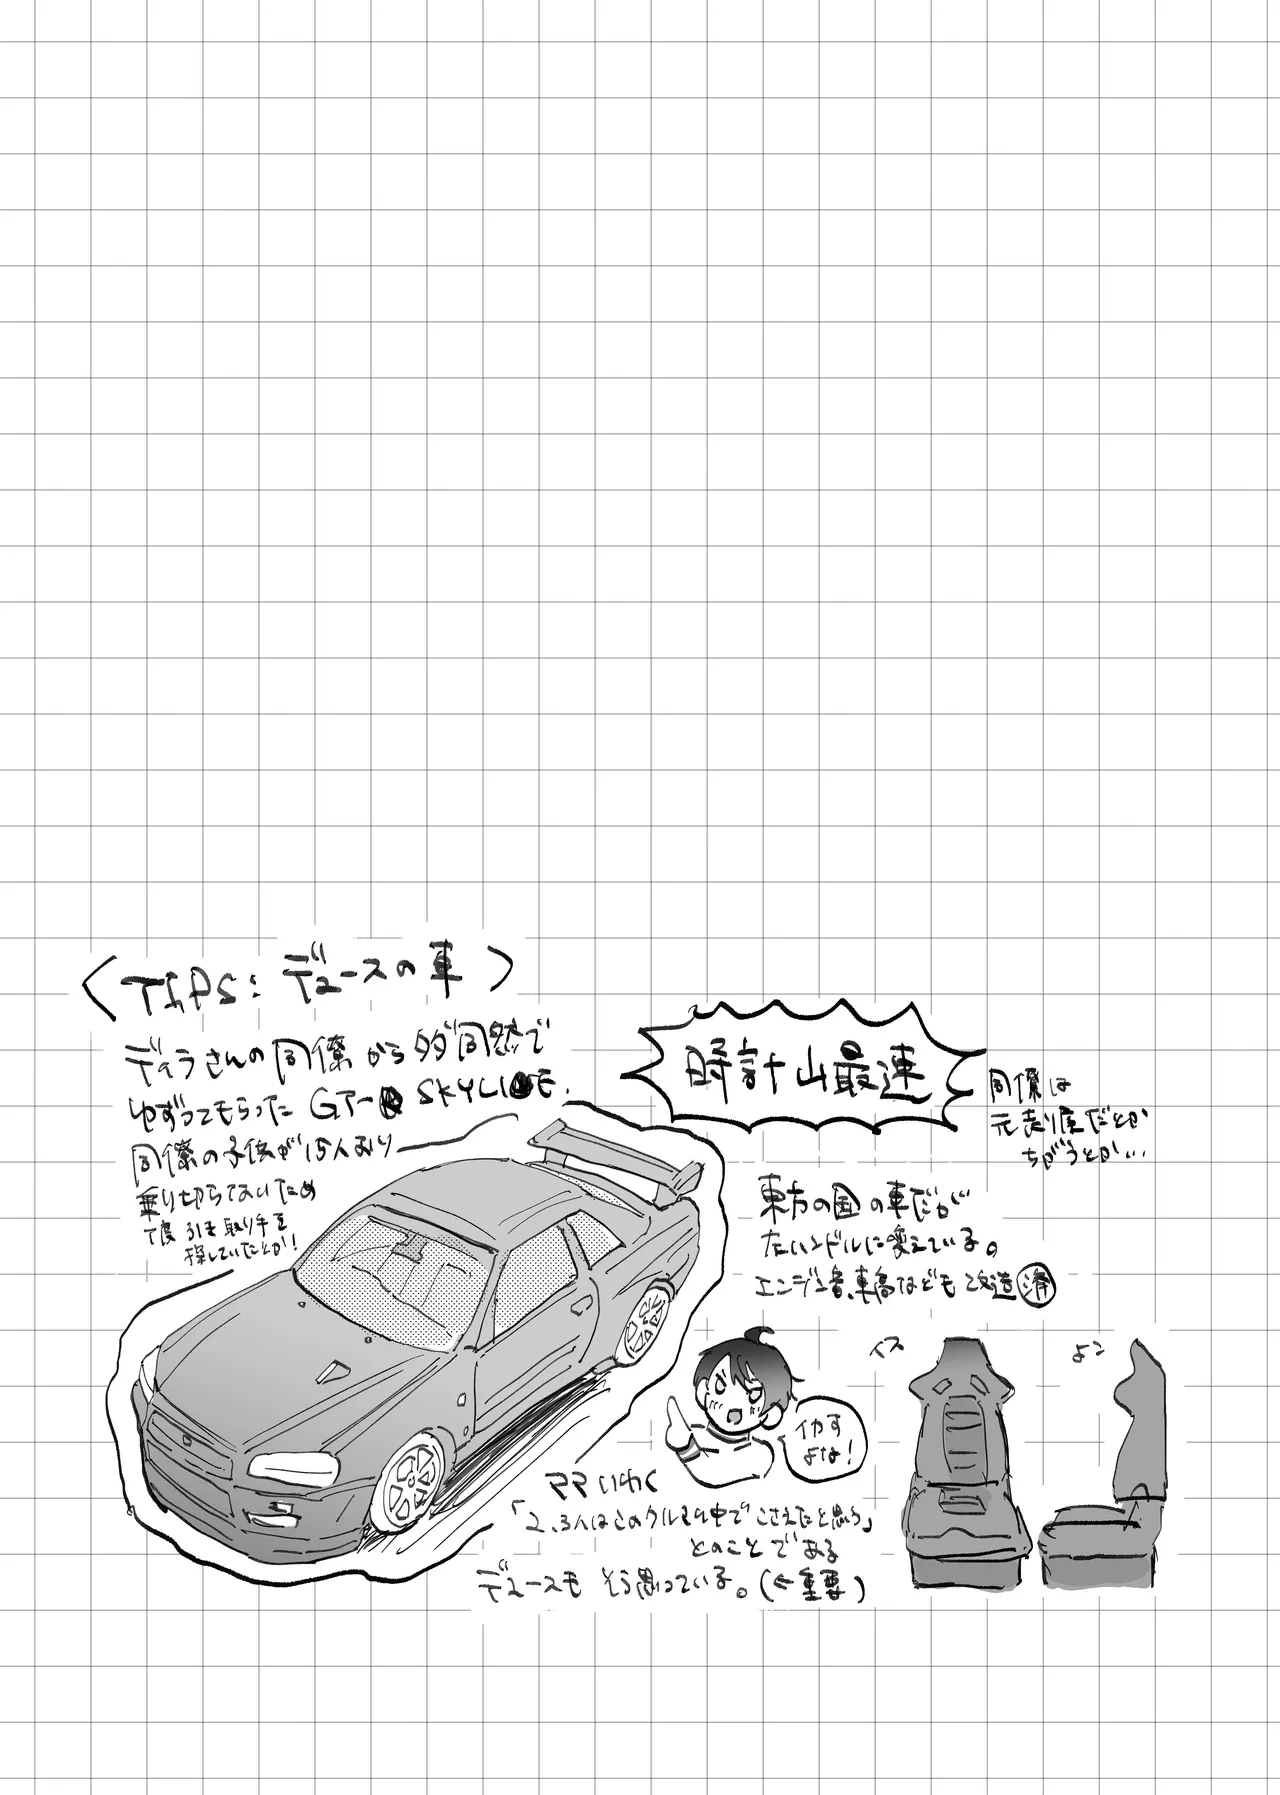 <TIPS:デュースの車>
ディラさんの同僚からタダ同然で
ゆずってもらったGT-R SKYLINE.
同僚の子供が15人おり
乗り切らないため
丁度引き取り手を
探していたとか!
時計山最速
同僚は
元走り屋だとか
ちがうとか…
東方の国の車だが
左ハンドルに変えている。
エンジン音、車高なども改造済
イス
よこ
イカす
よな!
ママいわく
「2、3人はこのクルマの中でこさえたと思う」
とのことである
デュースもそう思っている。(←重要)